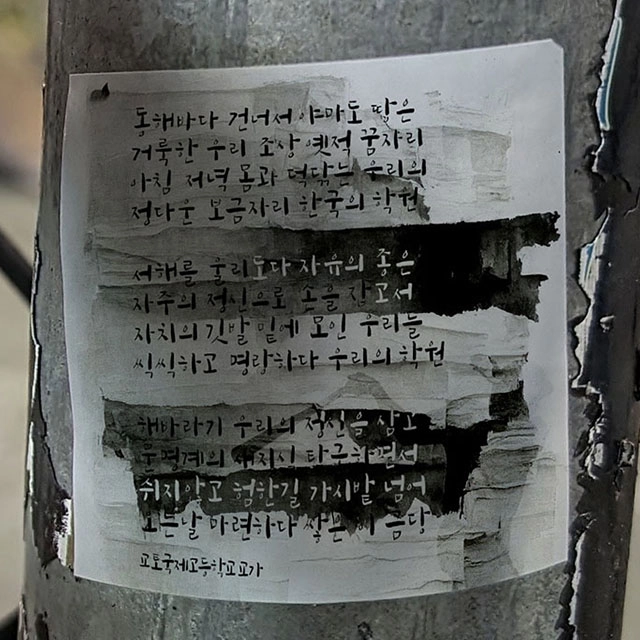 동해바다 건너서 야마도 땅은
거룩한 우리 조상 옛적 꿈자리
아침 저녁 몸과 덕닦는 우리의
정다운 보금자리 한국의 학원
서해를 울리도다 자유의 종은
자주의 정신으로 손을 잡고서
자치의 깃발 밑에 모인 우리들
씩씩하고 명랑하다 우리의 학원
해바라기 우리의 정신을 삼고
문명계의 새지식 탐구하면서
쉬지않고 험한길 가시밭 넘어
오는날 마련하다 쌓는 이 금당
교토국제고등학교교가